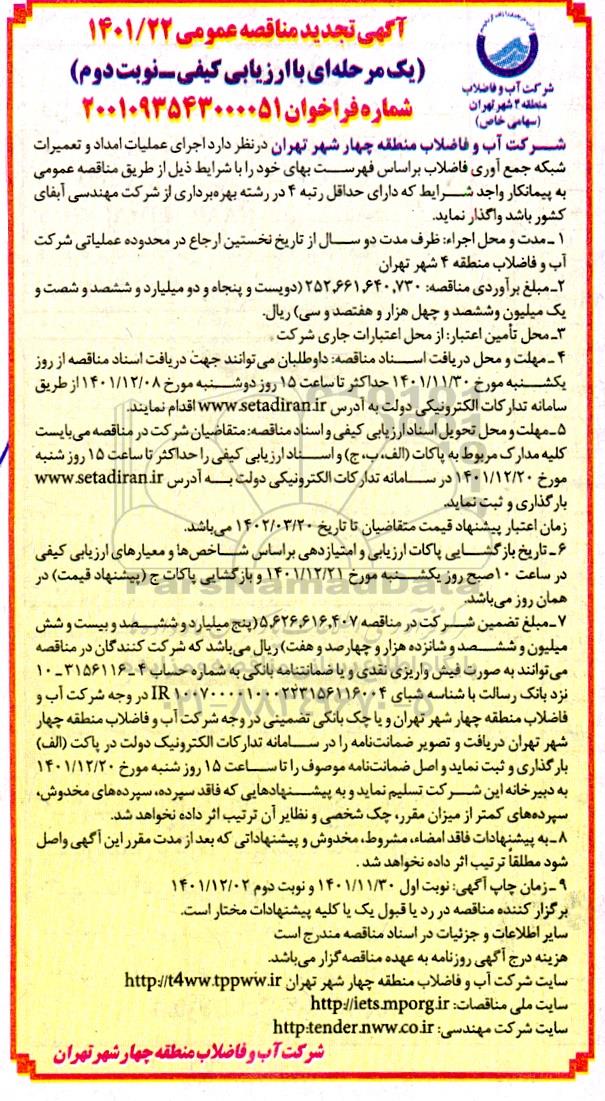 آگهی تجدید مناقصه عمومی ۱۴۰۱/۲۲
(یک مرحله‌ای با ارزیابی کیفی ـ نوبت دوم)
شماره فراخوان ۲۰۰۱۰۹۳۵۴۳۰۰۰۰۵۱
شرکت آب و فاضلاب
منطقه ۴ شهر تهران
(سهامی خاص)
شـــرکت آب و فاضلاب منطقه چهار شهر تهران درنظر دارد اجرای عملیات امداد و تعمیرات
شبکه جمع آوری فاضلاب براساس فهرســت بهای خود را با شرایط ذیل از طریق مناقصه عمومی
به پیمانکار واجد شـــرایط که دارای حداقل رتبه ۴ در رشته بهره‌برداری از شرکت مهندسی آبفای
کشور باشد واگذار نماید.
۱ ـ مدت و محل اجراء: ظرف مدت دو ســـال از تاریخ نخستین ارجاع در محدوده عملیاتی شرکت
آب و فاضلاب منطقه ۴ شهر تهران
۲ـ مبلغ برآوردی مناقصه: ۲۵۲,۶۶۱,۶۴۰,۷۳۰ (دویست و پنجاه و دو میلیارد و ششصد و شصت و
یک میلیون وششصد و چهل هزار و هفتصد و سی) ریال.
۳ـ محل تأمین اعتبار: از محل اعتبارات جاری شرکت
۴ ـ مهلت و محل دریافت اســـناد مناقصه: داوطلبان می‌توانند جهت دریافت اسناد مناقصه از روز
یکشـــنبه مورخ ۱۴۰۱/۱۱/۳۰ حداکثر تا ساعت ۱۵ روز دوشـــنبه مورخ ۱۴۰۱/۱۲/۰۸ از طریق
سامانه تدارکات الکترونیکی دولت به آدرس www.setadiran.ir اقدام نمایند.
۵ـ مهلت و محل تحویل اسناد ارزیابی کیفی و اسناد مناقصه: متقاضیان شرکت در مناقصه می‌بایست
کلیه مدارک مربوط به پاکات (الف، ب، ج) و اســـناد ارزیابی کیفی را حداکثر تا ساعت ۱۵ روز شنبه
مورخ ۱۴۰۱/۱۲/۲۰ در ســـامانه تدارکات الکترونیکی دولت بـــه آدرس www.setadiran.ir
بارگذاری و ثبت نماید.
زمان اعتبار پیشنهاد قیمت متقاضیان تا تاریخ ۱۴۰۲/۰۳/۲۰ می‌باشد.
۶ ـ تاریخ بازگشـــایی پاکات ارزیابی و امتیازدهی براساس شـــاخص‌ها و معیارهای ارزیابی کیفی
در ساعت ۱۰صبح روز یکشـــنبه مورخ ۱۴۰۱/۱۲/۲۱ و بازگشایی پاکات ج (پیشنهاد قیمت) در
همان روز می‌باشد.
۷ـ مبلغ تضمین شـــرکت در مناقصه ۵,۶۲۶,۶۱۶,۴۰۷ (پنج میلیارد و ششـــصد و بیست و شش
میلیون و ششـــصد و شانزده هزار و چهارصد و هفت) ریال می‌باشد که شرکت کنندگان در مناقصه
می‌توانند به صورت فیش واریزی نقدی و یا ضمانتنامه بانکی به شماره حساب ۴ـ ۳۱۵۶۱۱۶ ـ ۱۰
نزد بانک رسالت با شناسه شبای IR ۱۰۰۷۰۰۰۰۱۰۰۰۲۴۳۱۵۶۱۱۶۰۰۴ در وجه شرکت آب و
فاضلاب منطقه چهار شهر تهران و یا چک بانکی تضمینی در وجه شرکت آب و فاضلاب منطقه چهار
شهر تهران دریافت و تصویر ضمانت‌نامه را در ســـامانه تدارکات الکترونیک دولت در پاکت (الف)
بارگذاری و ثبت نماید و اصل ضمانت‌نامه موصوف را تا ســـاعت ۱۵ روز شنبه مورخ ۱۴۰۱/۱۲/۲۰
به دبیرخانه این شـــرکت تسلیم نماید و به پیشـــنهادهایی که فاقد سپرده، سپرده‌های مخدوش،
سپرده‌های کمتر از میزان مقرر، چک شخصی و نظایر آن ترتیب اثر داده نخواهد شد.
۸ ـ به پیشنهادات فاقد امضاء، مشروط، مخدوش و پیشنهاداتی که بعد از مدت مقرر این آگهی واصل
شود مطلقاً ترتیب اثر داده نخواهد شد .
۹ ـ زمان چاپ آگهی: نوبت اول ۱۴۰۱/۱۱/۳۰ و نوبت دوم ۱۴۰۱/۱۲/۰۲
برگزارکننده مناقصه در رد یا قبول یک یا کلیه پیشنهادات مختار است.
سایر اطلاعات و جزئیات در اسناد مناقصه مندرج است
هزینه درج آگهی روزنامه به عهده مناقصه‌گزار می‌باشد.
سایت شرکت آب و فاضلاب منطقه چهار شهر تهران http://t4ww.tppww.ir
سایت ملی مناقصات: http://iets.mporg.ir
سایت شرکت مهندسی: http:tender.nww.co.ir
شرکت آب و فاضلاب منطقه چهار شهر تهران
ParsNamadData